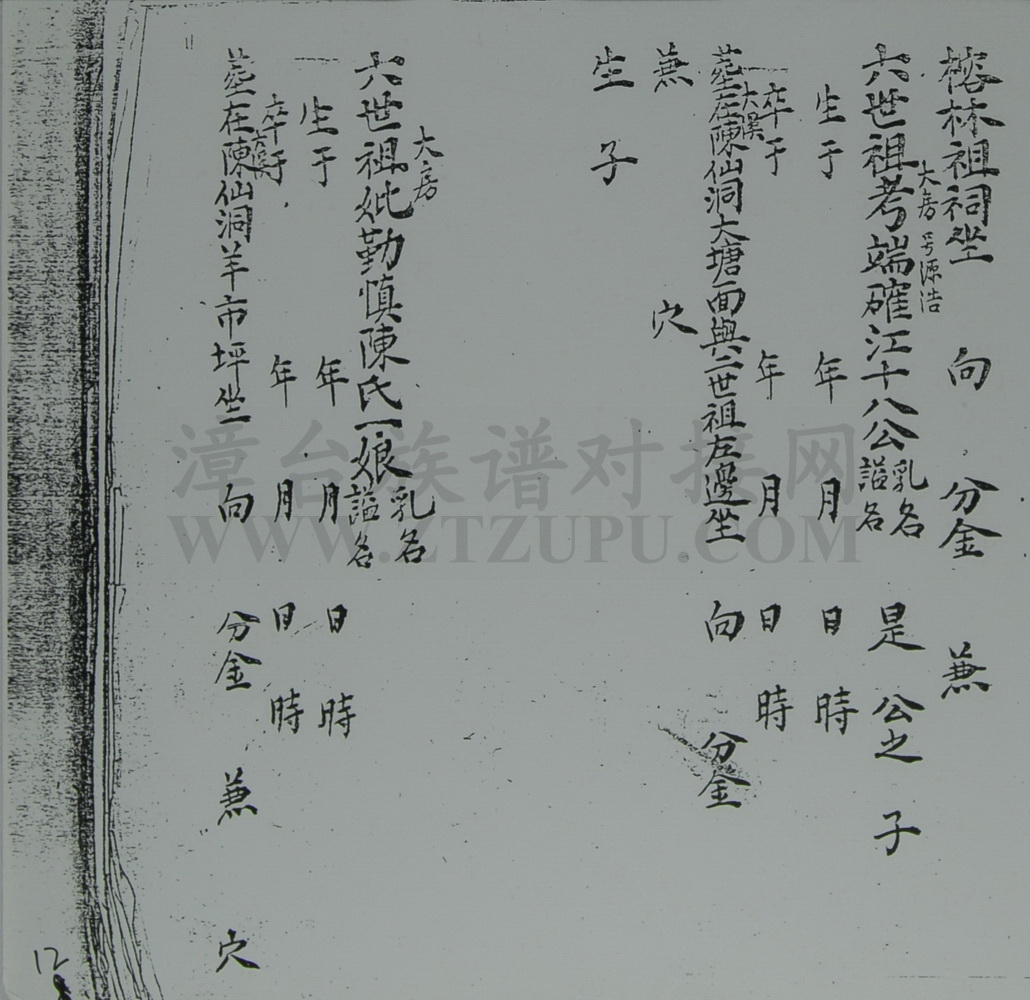 榕林祖祠坐 向 分金 兼
大房 号源浩
六世祖考端確江十八公 乳名 謚名 是 公之子
生于 年 月 日 時
卒于 年 月 日 時
大溪
墓在陳仙洞大塘面與六世祖左邊坐 向 分金
兼 穴
生子
大房
六世祖妣勤慎陳氏一娘 乳名 謚名
生于 年 月 日 時
卒于 年 月 日 時
墓在陳仙洞羊市坪坐 向 分金 兼 穴
漳台族谱对接网
WWW.ZTZUPU.COM
12